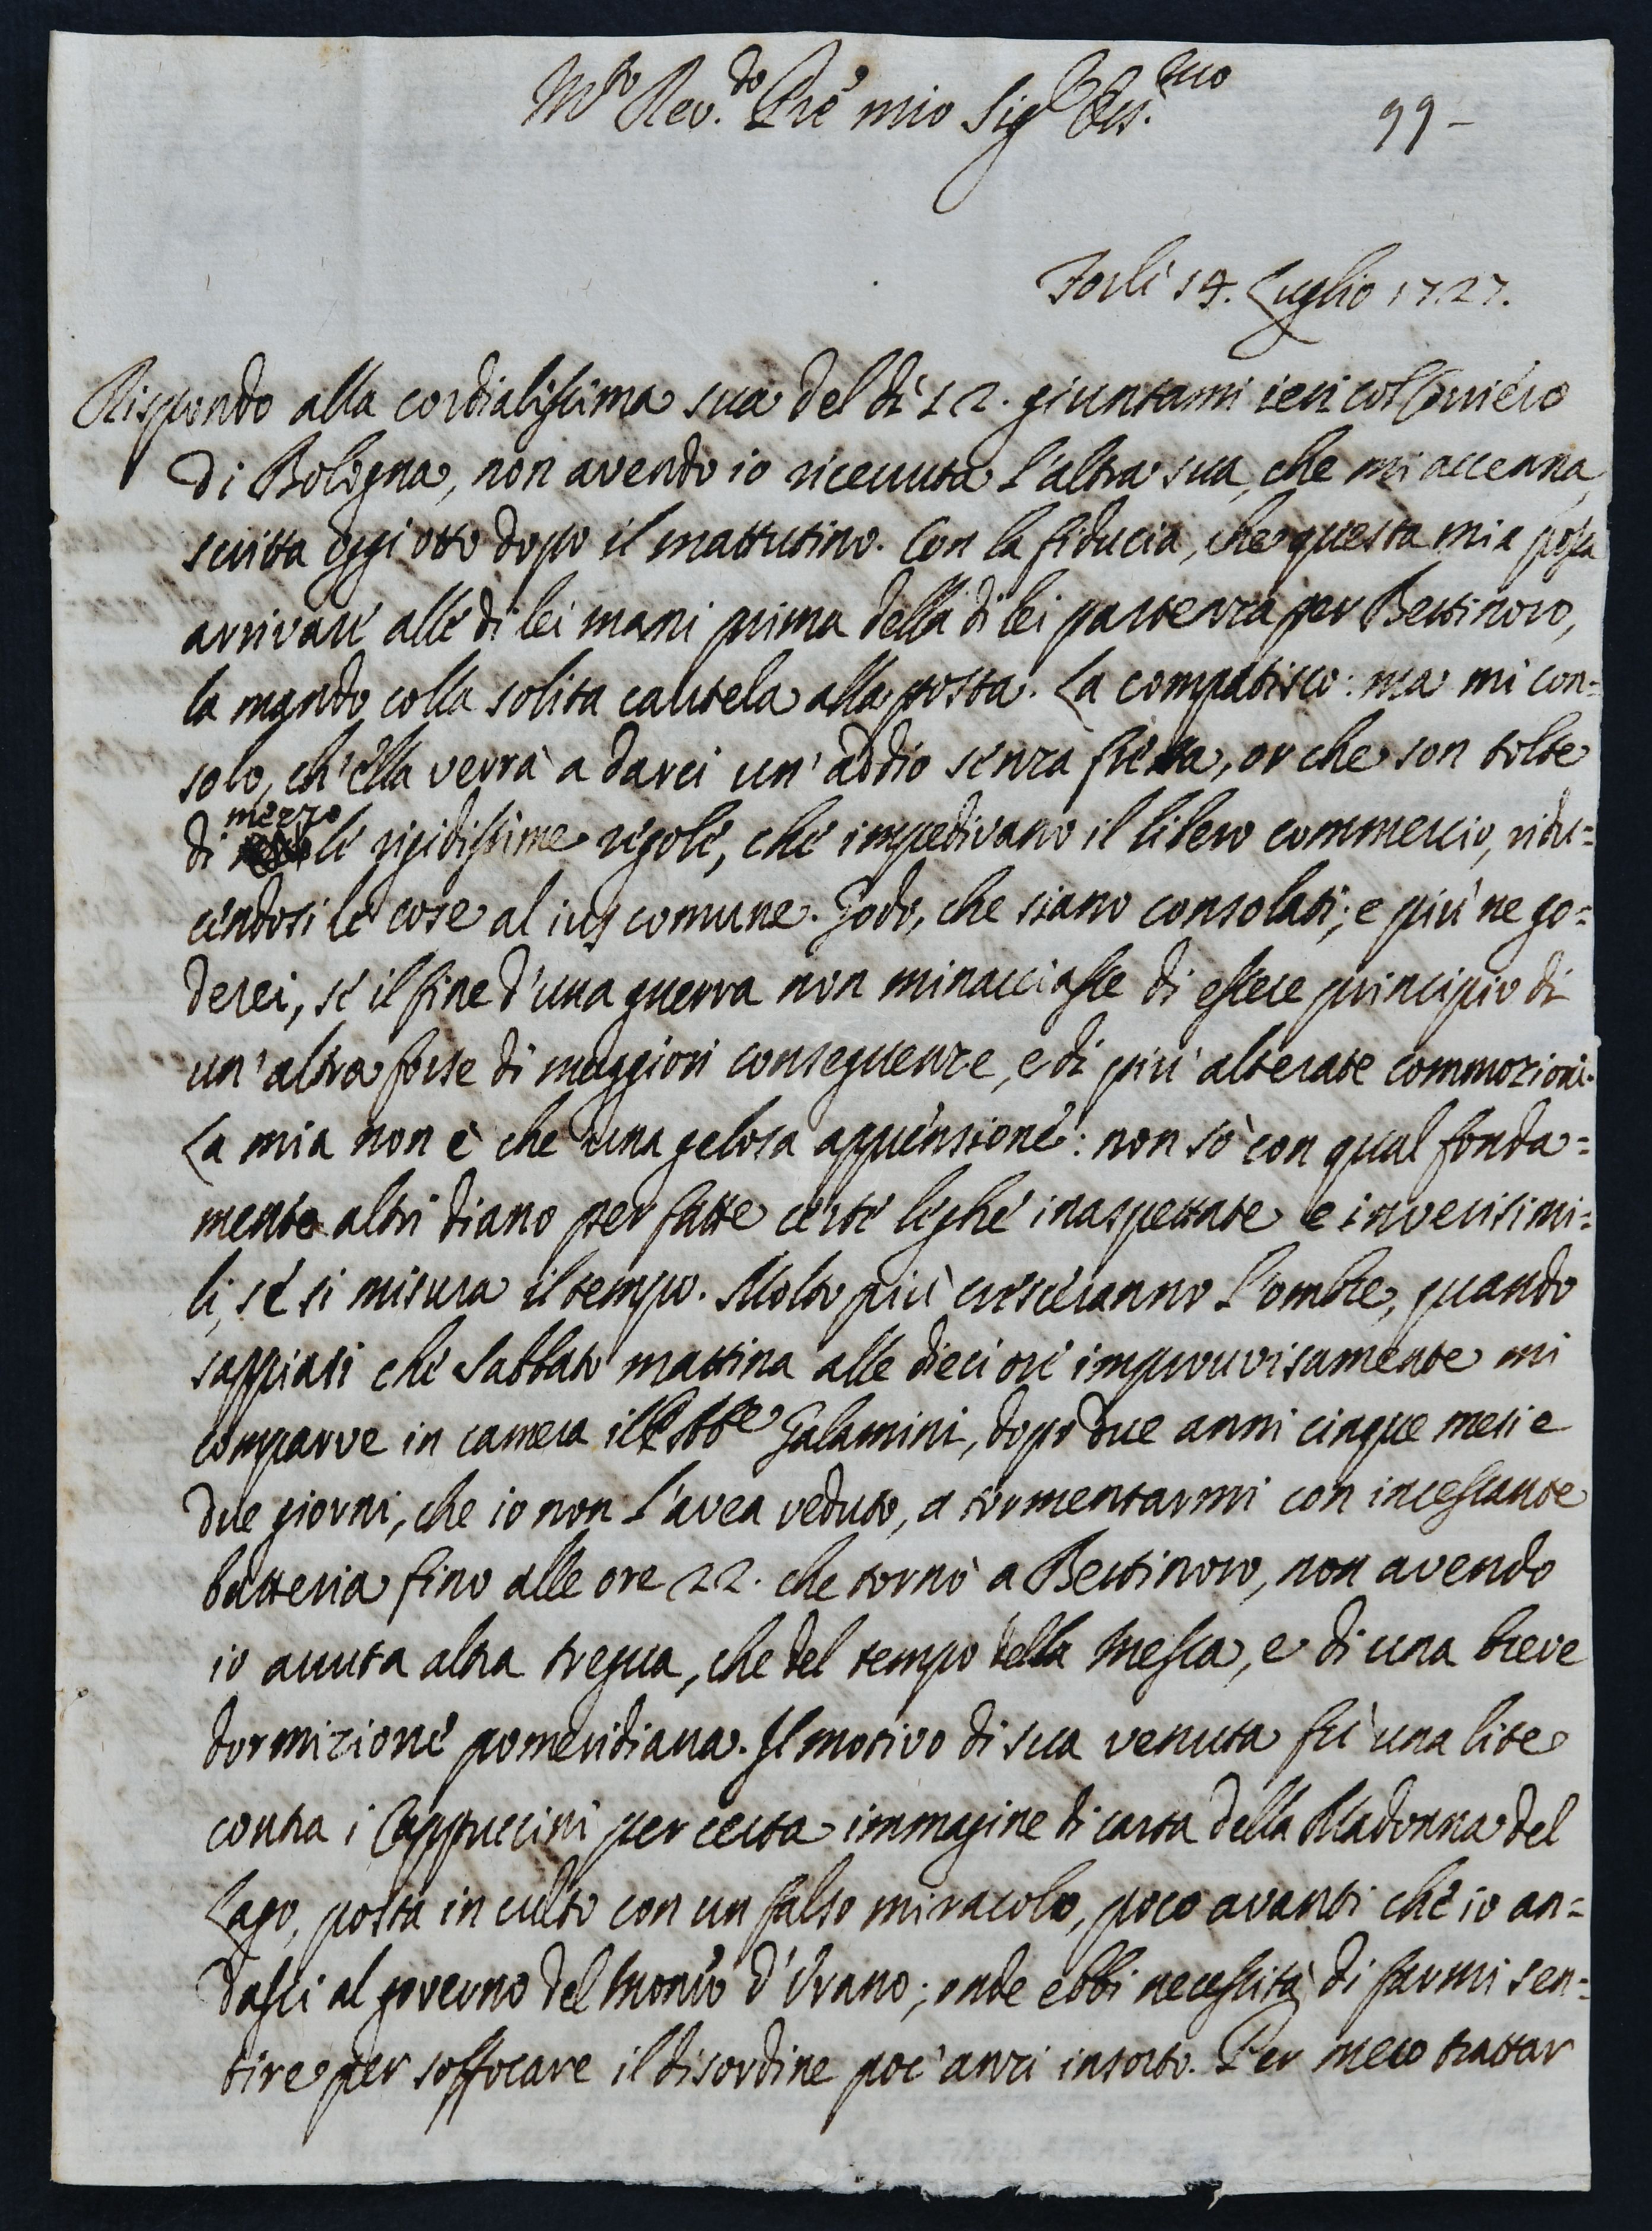 M.to Rev.do Pre mio Sig.r Oss.mo
99-
Forlì 14. Luglio 1727.
Rispondo alla cordialissima sua del dì 12. giuntami ieri col Corriero
di Bologna, non avendo io ricevuta l'altra sua, che mi accenna,
scritta oggi otto dopo il mattutino. Con la fiducia, che questa mia possa
arrivare alle di lei mani prima della di lei partenza per Bertinoro,
la mando colla solita cautela alla posta. La compatisco: ma mi con=
solo, ch'ella verrà a darci un'addio senza fretta, or che son tolte
di mezzo le rigidissime regole, che impedivano il libero commercio, ridu=
cendosi le cose al ius comune. Godo, che siano consolati; e più ne go=
derei, se il fine d'una guerra non minacciasse di essere principio di
un'altra forse di maggiori conseguenze, e di più alterate commozioni.
La mia non è che una gelosa apprensione: non sò con qual fonda=
mento altri diano per fatte certe leghe inaspettate e inverisimi=
li, se si misura il tempo. Molto più cresceranno l'ombre, quando
sappiasi che Sabbato mattina alle dieci ore improvvisamente mi
comparve in camera il Abbe Galamini, dopo due anni cinque mesi e
due giorni, che io non l'avea veduto, a tormentarmi con incessante
batteria fino alle ore 22. che tornò a Bertinoro, non avendo
io avuta altra tregua, che del tempo della Messa, e di una breve
dormizione pomeridiana. Il motivo di sua venuta fù una lite
contra i Cappuccini per certa immagine di carta della Madonna del
Lago, posta in culto con un falso miracolo, poco avanti che io an=
dassi al governo del Monro d'Urano; onde ebbi necessità di farmi sen=
tire per soffocare il disordine poc'anzi insorto. Per meco trattar